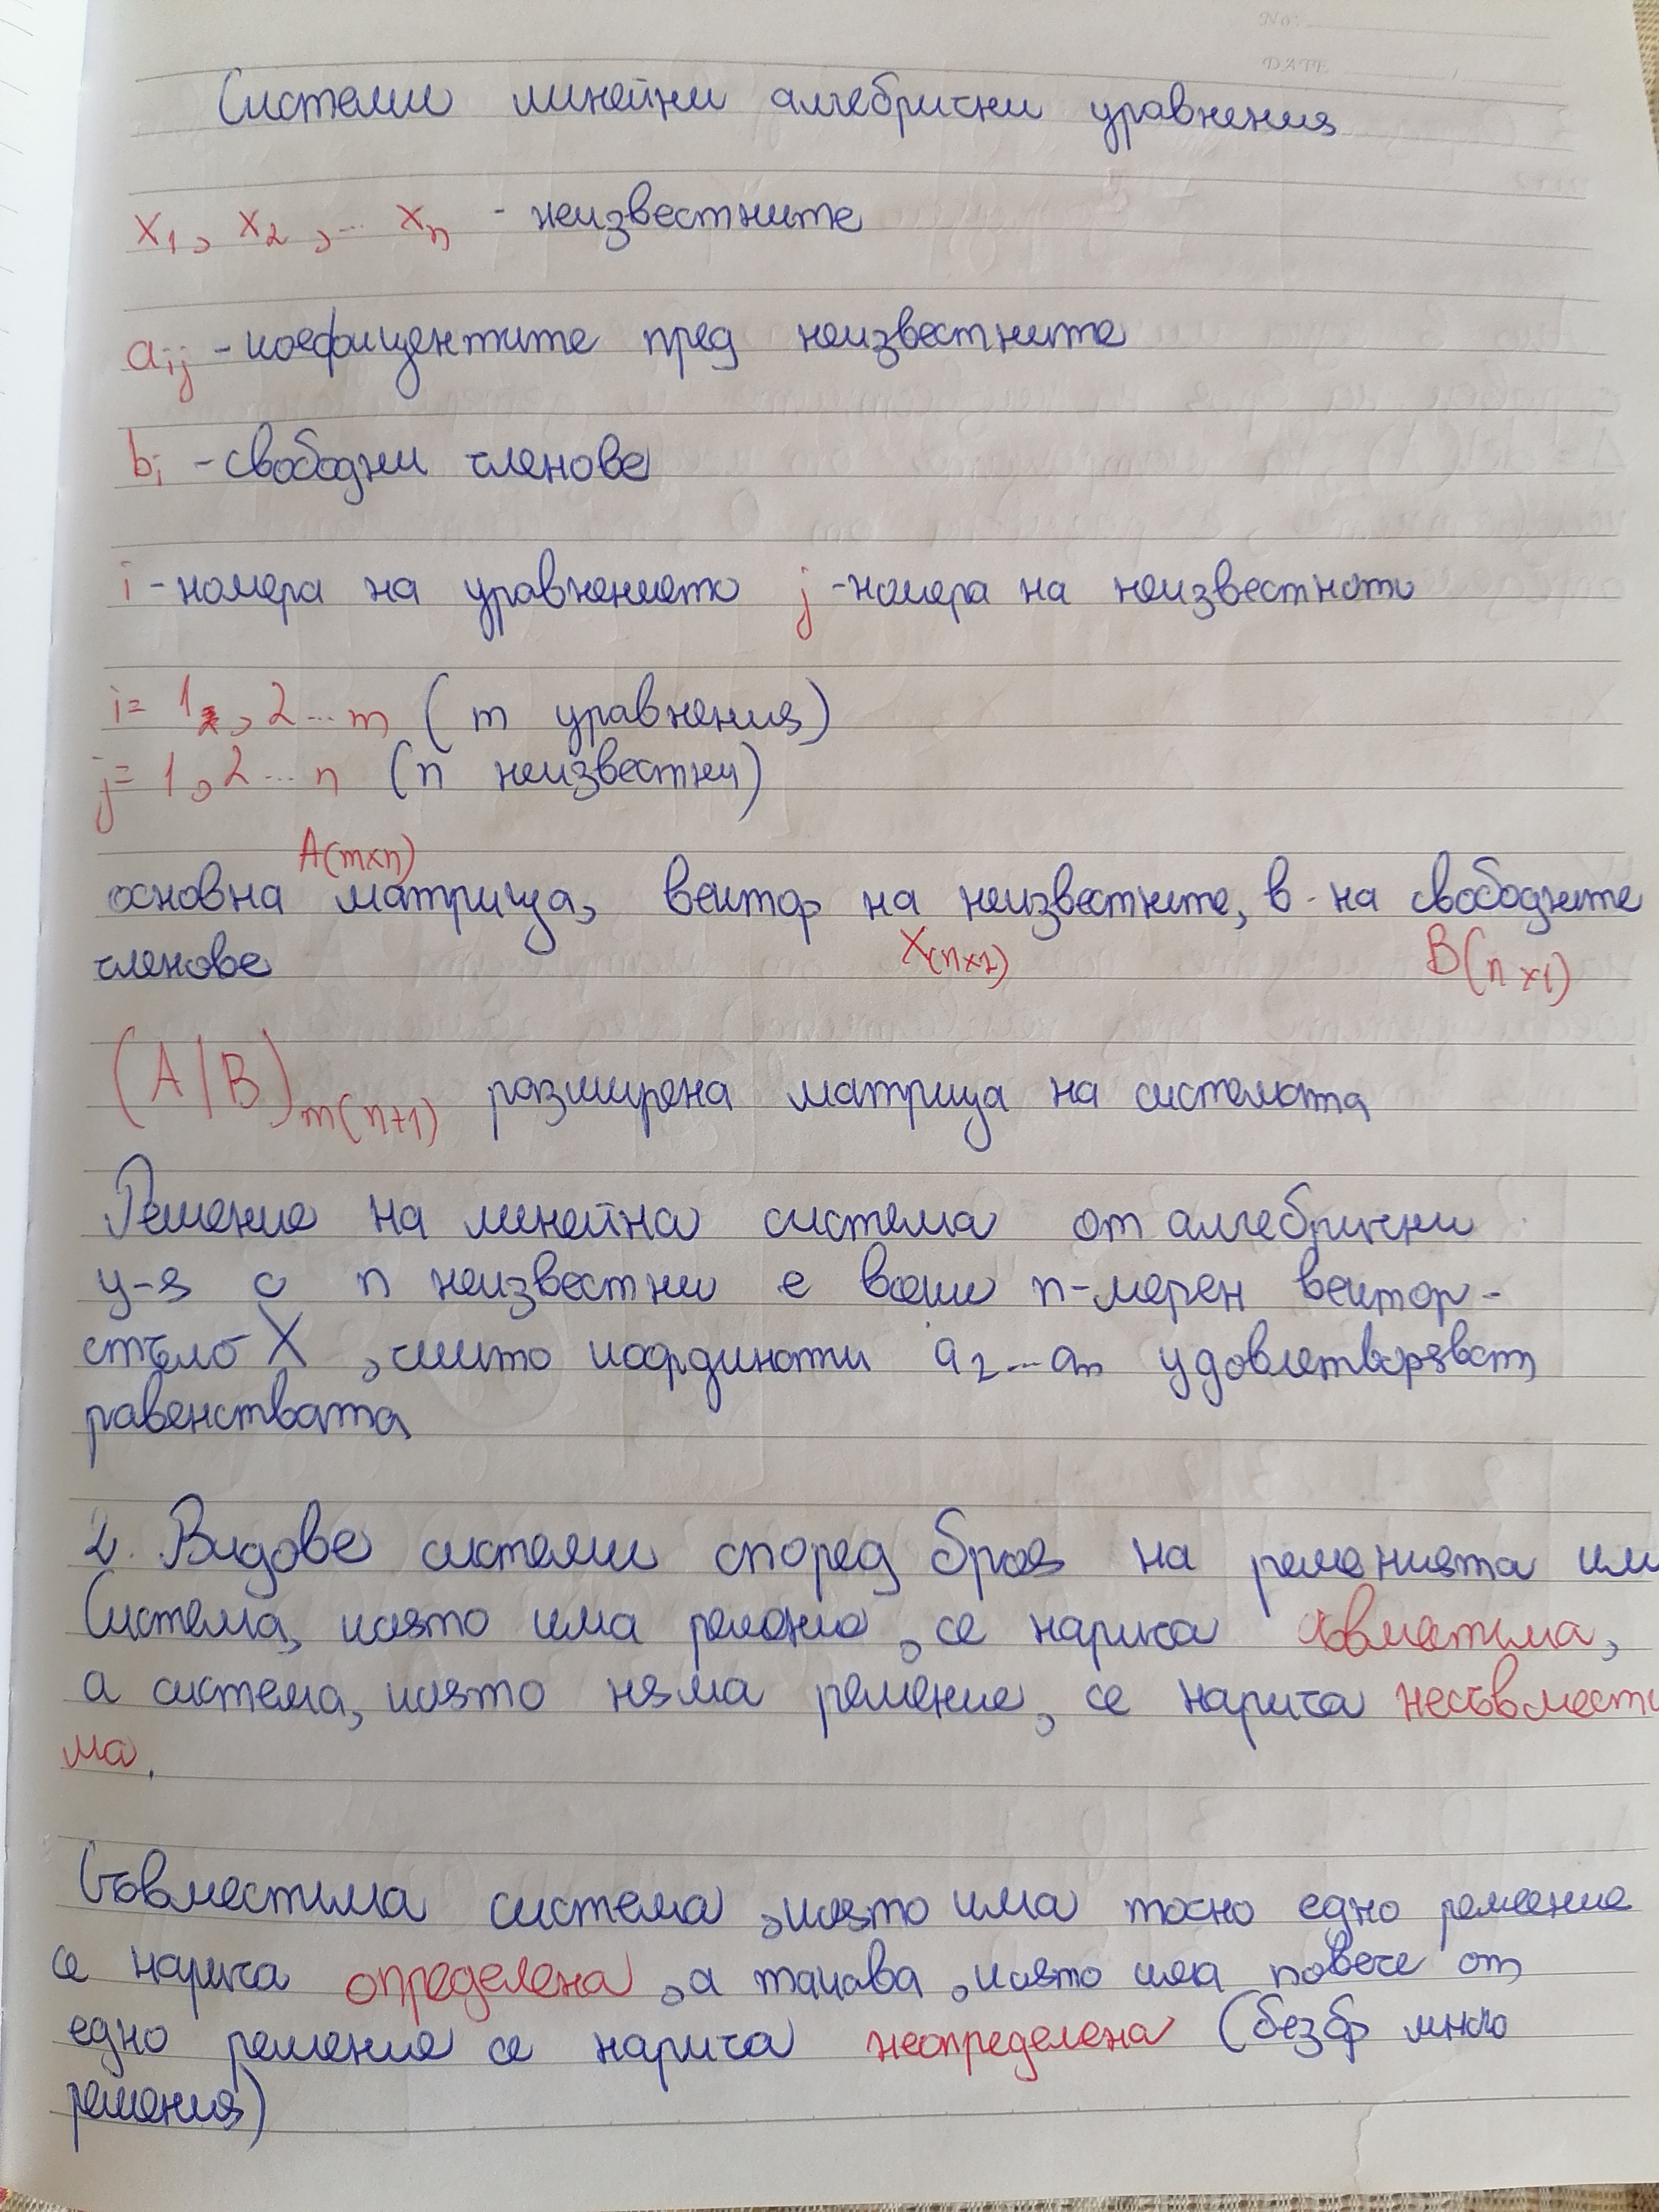 No:
DATE
Системи линейни алгебрични уравнения
x₁, x₂, ... xₙ - неизвестните
aᵢⱼ - коефицентите пред неизвестните
bᵢ - свободни членове
i - номера на уравнението j - номера на неизвестното
i= 1, 2 ... m (m уравнения)
j= 1, 2 ... n (n неизвестни)
A(m×n)
основна матрица, вектор на неизвестните, в. на свободните
членове X(n×1) B(n×1)
(A|B) m(n+1) разширена матрица на системата
Решение на линейна система от алгебрични
у-я с n неизвестни е всеки n-мерен вектор-
стълб X, чиито координати a₂...aₙ удовлетворяват
равенствата
2. Видове системи според броя на решенията им
Система, която има решение, се нарича съвместима,
а система, която няма решение, се нарича несъвмести
ма.
Съвместима система, която има точно едно решение
се нарича определена, а такава, която има повече от
едно решение се нарича неопределена (безбр много
решения)